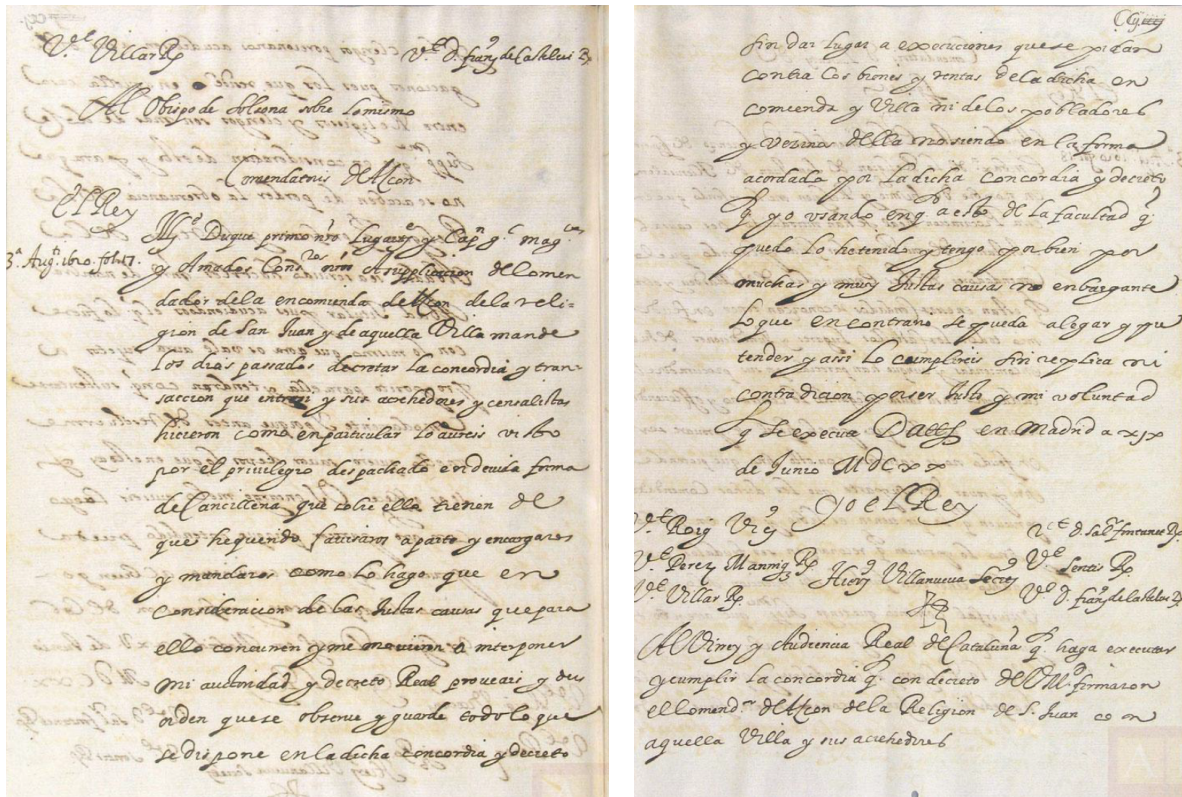 V.t Villar R.
V.t D. fran.s de Castelvi R.
Al Obispo de Solsona sobre lo mismo
Comendatoris de Ascon
El Rey
Ill.e Duque primo nro Lugart.e y Cap.n g.l mag.cos
3.a Aug.ti lib.ro fol. 17.
y Amados Cons.ros nros A suppliccacion del Comen
dador de la encomienda de Ascon de la reli-
gion de San Juan y de aquella Villa mande
los dias passados decretar la concordia y tran-
saccion que entresi y sus acrehedores y censalistas
hicieron como en particular lo aureis visto
por el privilegio despachado en devida forma
de Cancilleria que sobre ello tienen de
que he querido avisaros a parte y encargaros
y mandaros como lo hago que en
consideracion de las Justas causas que para
ello concurren y me movieron a interponer
mi auctoridad y decreto Real proveais y deis
orden que se observe y guarde todo lo que
se dispone en la dicha concordia y decreto
sin dar lugar a execuciones que se pidan
contra los bienes y rentas de la dicha en
comienda y Villa ni de los pobladores
y vezinos della no siendo en la forma
acordada por la dicha concordia y decreto
q. yo usando en q.to a esto de la facultad q.
puedo lo he tenido y tengo por bien por
muchas y muy Justas causas no enbargante
lo que en contrario se pueda alegar y pre
tender y assi lo cumplireis sin replica ni
contradicion por ser Justo y mi voluntad
q. se execute Datt. en Madrid a xix
de Junio MDCxx
Yo el Rey
V.t Roig Vic.s
V.t D. Sal.r fontanet R.
V.t Perez Manriq R.
V.t Sentis R.
Hier.s Villanueva Secret.s
V.t Villar R.
V.t D. fran.s de Castelvi R.
Al Virrey y Audiencia Real de Cataluña q. haga executar
y cumplir la concordia q. con decreto de V. M. firmaron
el Comend.or de Ascon de la Religion de S. Juan con
aquella Villa y sus acrehedores